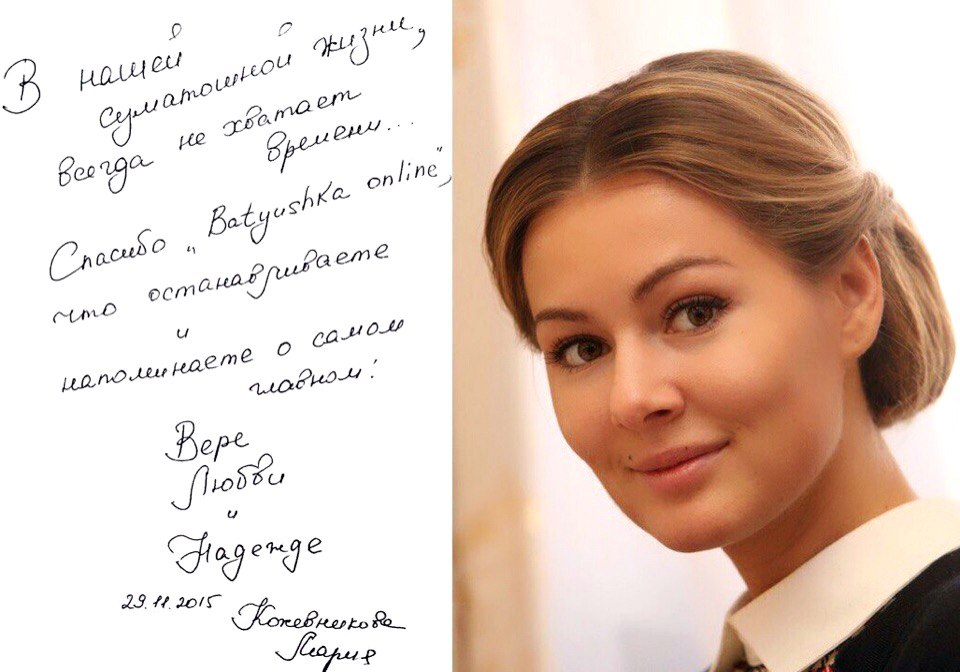 В нашей
суматошной жизни,
всегда не хватает
времени...
Спасибо „Batyushka online",
что останавливаете
и
напоминаете о самом
главном!
Вере
Любви
и
Надежде
29.11.2015
Кожевникова
Мария